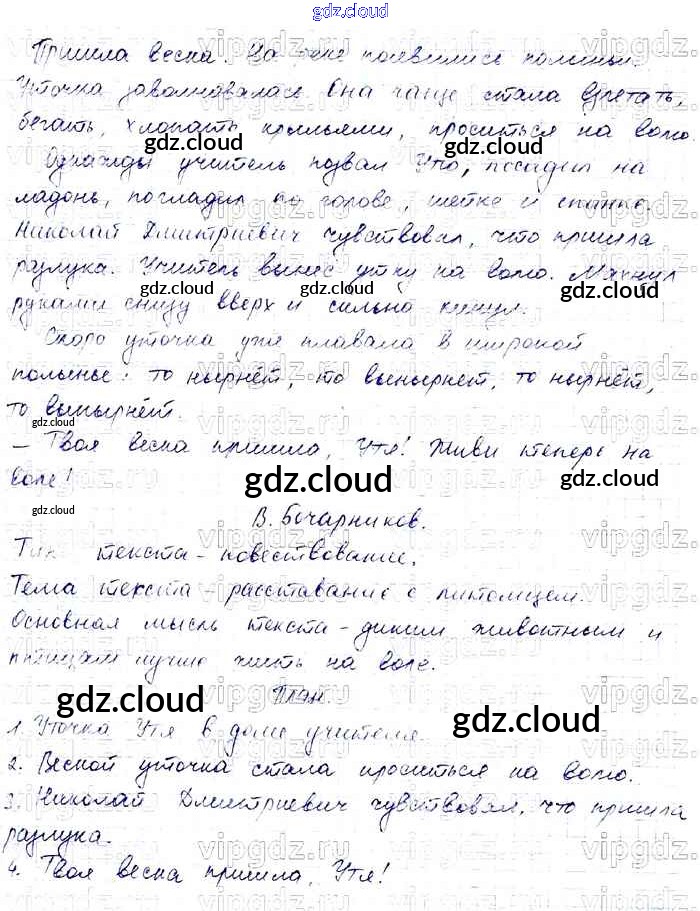 gdz.cloud
Пришла весна. На реке появились полыньи.
Уточка заволновалась. Она чаще стала взлетать,
бегать, хлопать крыльями, проситься на волю.
Однажды учитель позвал Утю, посадил на
ладонь, погладил по голове, шейке и спинке.
Николай Дмитриевич чувствовал, что пришла
разлука. Учитель вынес утку на волю. Махнул
руками снизу вверх и сильно кинул.
Скоро уточка уже плавала в широкой
полынье: то нырнёт, то вынырнет, то нырнёт,
то вынырнет.
– Твоя весна пришла, Утя! Живи теперь на
воле!
В. Бочарников.
Тип текста – повествование.
Тема текста – расставание с питомцем.
Основная мысль текста – диким животным и
птицам лучше жить на воле.
План.
1. Уточка Утя в доме учителя.
2. Весной уточка стала проситься на волю.
3. Николай Дмитриевич чувствовал, что пришла
разлука.
4. Твоя весна пришла, Утя!